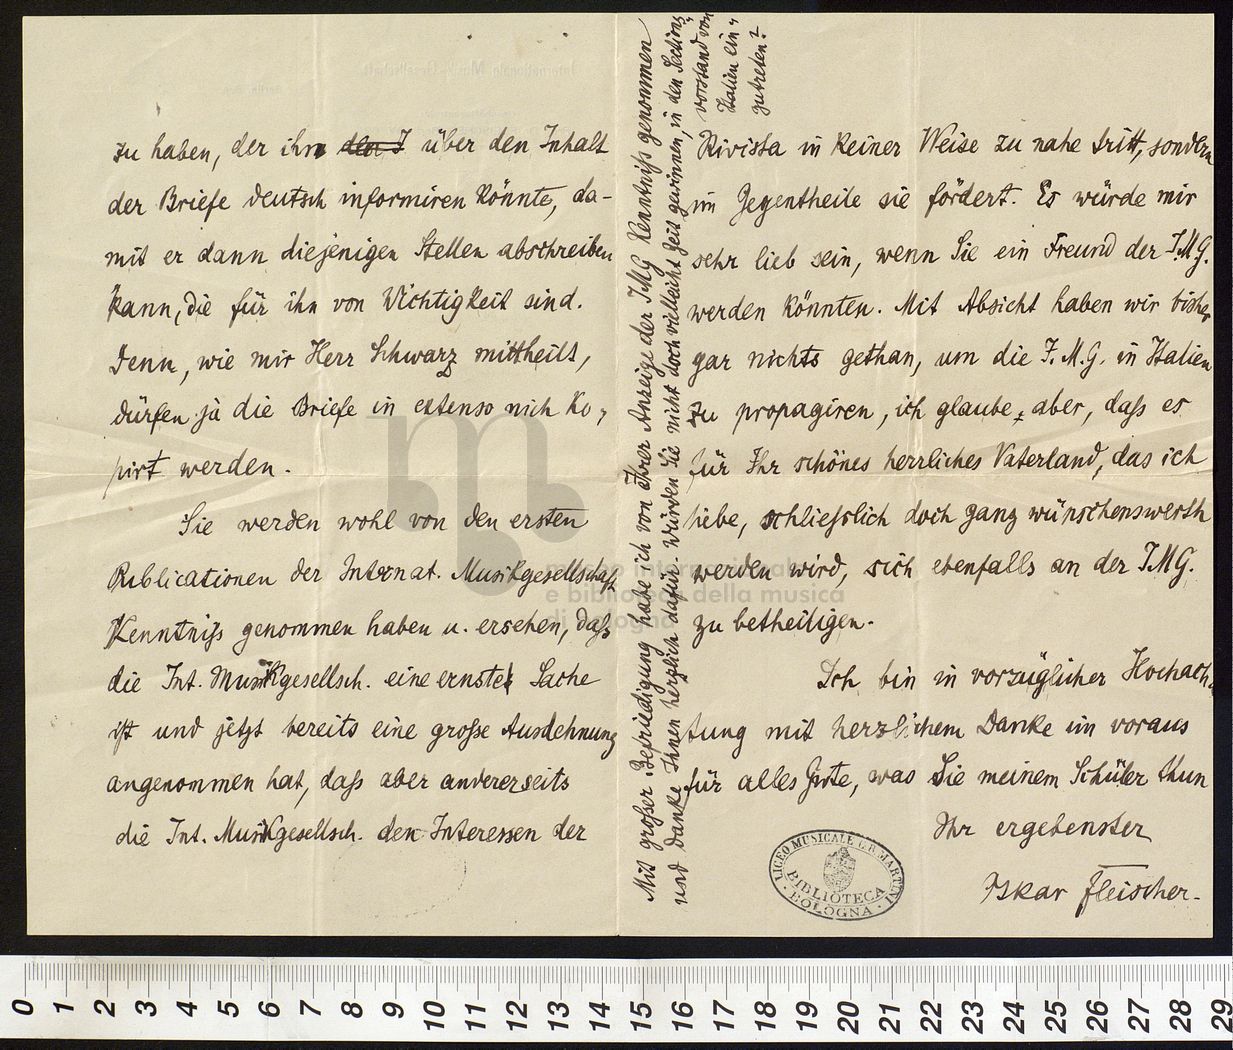 zu haben, der ihn ~~den I~~ über den Inhalt
der Briefe deutsch informiren könnte, da-
mit er dann diejenigen Stellen abschreiben
kann, die für ihn von Wichtigkeit sind.
Denn, wie mir Herr Schwarz mittheilt,
dürfen ja die Briefe in extenso nich ko-
pirt werden.
Sie werden wohl von den ersten
Publicationen der Internat. Musikgesellschaft
Kenntniß genommen haben u. ersehen, daß
die Int. Musikgesellsch. eine ernste Sache
ist und jetzt bereits eine große Ausdehnung
angenommen hat, daß aber andererseits
die Int. Musikgesellsch. den Interessen der
Rivista in keiner Weise zu nahe tritt, sondern
im Gegentheile sie fördert. Es würde mir
sehr lieb sein, wenn Sie ein Freund der I.M.G.
werden könnten. Mit Absicht haben wir bisher
gar nichts gethan, um die I.M.G. in Italien
zu propagiren, ich glaube aber, daß es
für Ihr schönes herrliches Vaterland, das ich
liebe, schließlich doch ganz wünschenswerth
werden wird, sich ebenfalls an der IMG.
zu betheiligen.
Ich bin in vorzüglicher Hochach-
tung mit herzlichem Danke im voraus
für alles Gute, was Sie meinem Schüler thun
Ihr ergebenster
Oskar Fleischer.
Mit großer Befriedigung habe ich von Ihrer Anzeige der IMG Kenntniß genommen
und danke Ihnen herzlich dafür. Würden Sie nicht doch vielleicht Zeit gewinnen, in den Sections-
vorstand von
Italien ein-
zutreten?
LICEO MUSICALE G.B. MARTINI
BIBLIOTECA
BOLOGNA
museo internazionale
e biblioteca della musica
di bologna
Internationale Musik-Gesellschaft
0 1 2 3 4 5 6 7 8 9 10 11 12 13 14 15 16 17 18 19 20 21 22 23 24 25 26 27 28 29